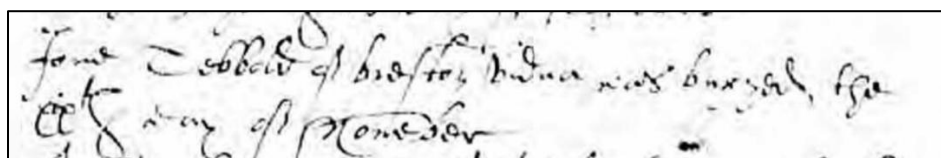 Jone Tebbald of breston vidua was buryed the
xxth day of November